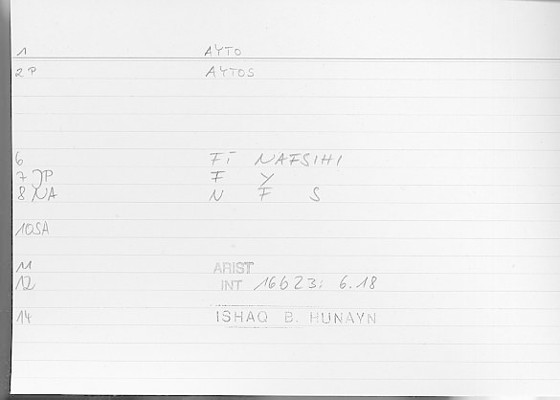 1 AYTO
2 P AYTOS
6 FĪ NAFSIHI
7 JP F Y
8 NA N F S
10 SA
11 ARIST
12 INT 16b23; 6.18
14 ISHAQ B. HUNAYN